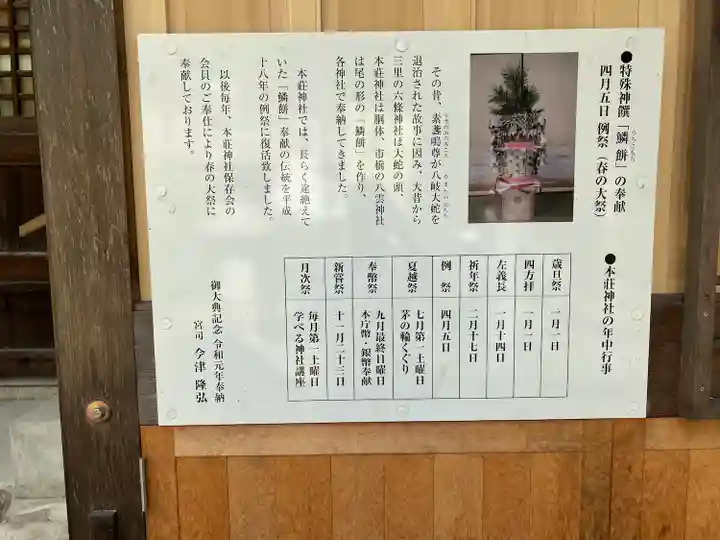 ●特殊神饌「鱗餅」の奉献
うろこもち
四月五日 例祭(春の大祭)
その昔、素盞嗚尊が八岐大蛇を
退治された故事に因み、大昔から
三里の六條神社は大蛇の頭、
本荘神社は胴体、市橋の八雲神社
は尾の形の「鱗餅」を作り、
各神社で奉納してきました。
本荘神社では、長らく途絶えて
いた「鱗餅」奉献の伝統を平成
十八年の例祭に復活致しました。
以後毎年、本荘神社保存会の
会員のご奉仕により春の大祭に
奉献しております。
●本荘神社の年中行事
歳旦祭 一月一日
四方拝 一月一日
左義長 一月十四日
祈年祭 二月十七日
例祭 四月五日
夏越祭 七月第一土曜日
茅の輪くぐり
奉幣祭 九月最終日曜日
本庁幣・銀幣奉献
新嘗祭 十一月二十三日
月次祭 毎月第一土曜日
学べる神社講座
御大典記念 令和元年奉納
宮司 今津 隆弘